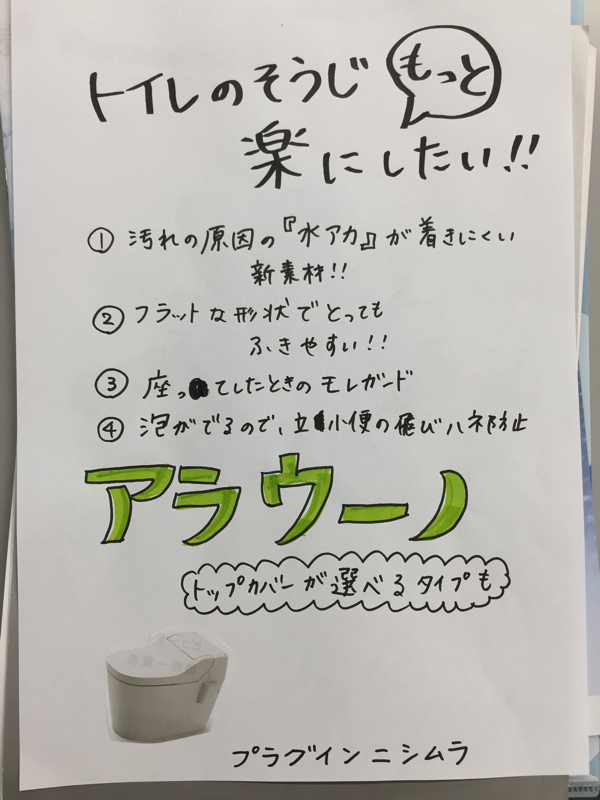 トイレのそうじ もっと
楽にしたい!!
① 汚れの原因の『水アカ』が着きにくい
新素材!!
② フラットな形状でとっても
ふきやすい!!
③ 座ってしたときのモレガード
④ 泡がでるので、立小便の飛びハネ防止
アラウーノ
トップカバーが選べるタイプも
プラグインニシムラ